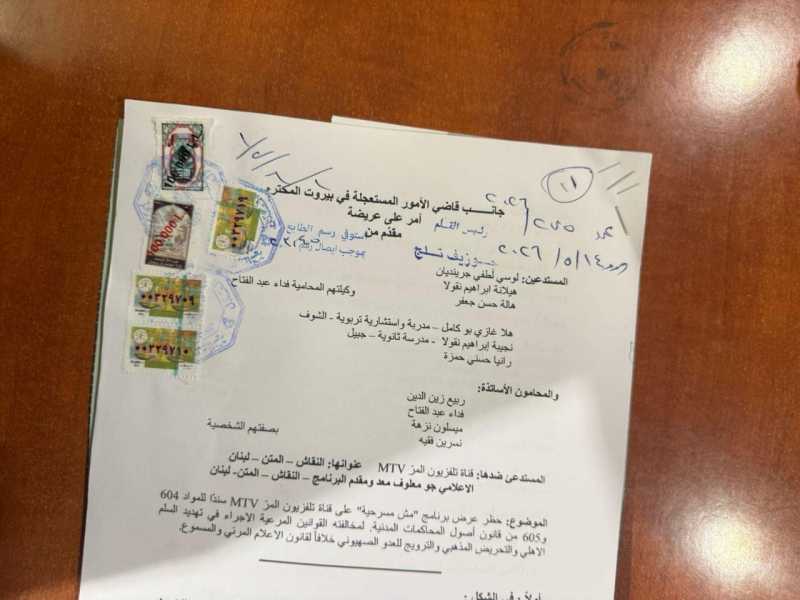 جانب قاضي الأمور المستعجلة في بيروت المحترم
أمر على عريضة
مقدّم من
رئيس القلم
جوزيف
استوفي رسم الطابع
بموجب ايصال رقم
٢٠٢٦/٢٥٥
٢٠٢٦/٥/١٤
100,000
٠٠٣٢٩٧١٩
٠٠٣٢٩٧٠٩
٠٠٣٢٩٧١٠
المستدعين: لوسي لطفي جرينديان
هيلانة ابراهيم نقولا
هالة حسن جعفر
وكيلتهم المحامية فداء عبد الفتاح
هلا غازي بو كامل – مدربة واستشارية تربوية - الشوف
نجيبة إبراهيم نقولا - مدرسة ثانوية – جبيل
رانيا حسني حمزة
والمحامون الأساتذة:
ربيع زين الدين
فداء عبد الفتاح
ميسلون نزهة
نسرين فقيه
بصفتهم الشخصية
المستدعى ضدها: قناة تلفزيون المرّ MTV عنوانها: النقاش – المتن – لبنان
الاعلامي جو معلوف معد ومقدم البرنامج – النقاش – المتن- لبنان
الموضوع: حظر عرض برنامج "مش مسرحية" على قناة تلفزيون المرّ MTV سندًا للمواد 604
و605 من قانون أصول المحاكمات المدنية. لمخالفته القوانين المرعية الاجراء في تهديد السلم
الاهلي والتحريض المذهبي والترويج للعدو الصهيوني خلافاً لقانون الاعلام المرئي والمسموع.
أولاً - في الشكل :